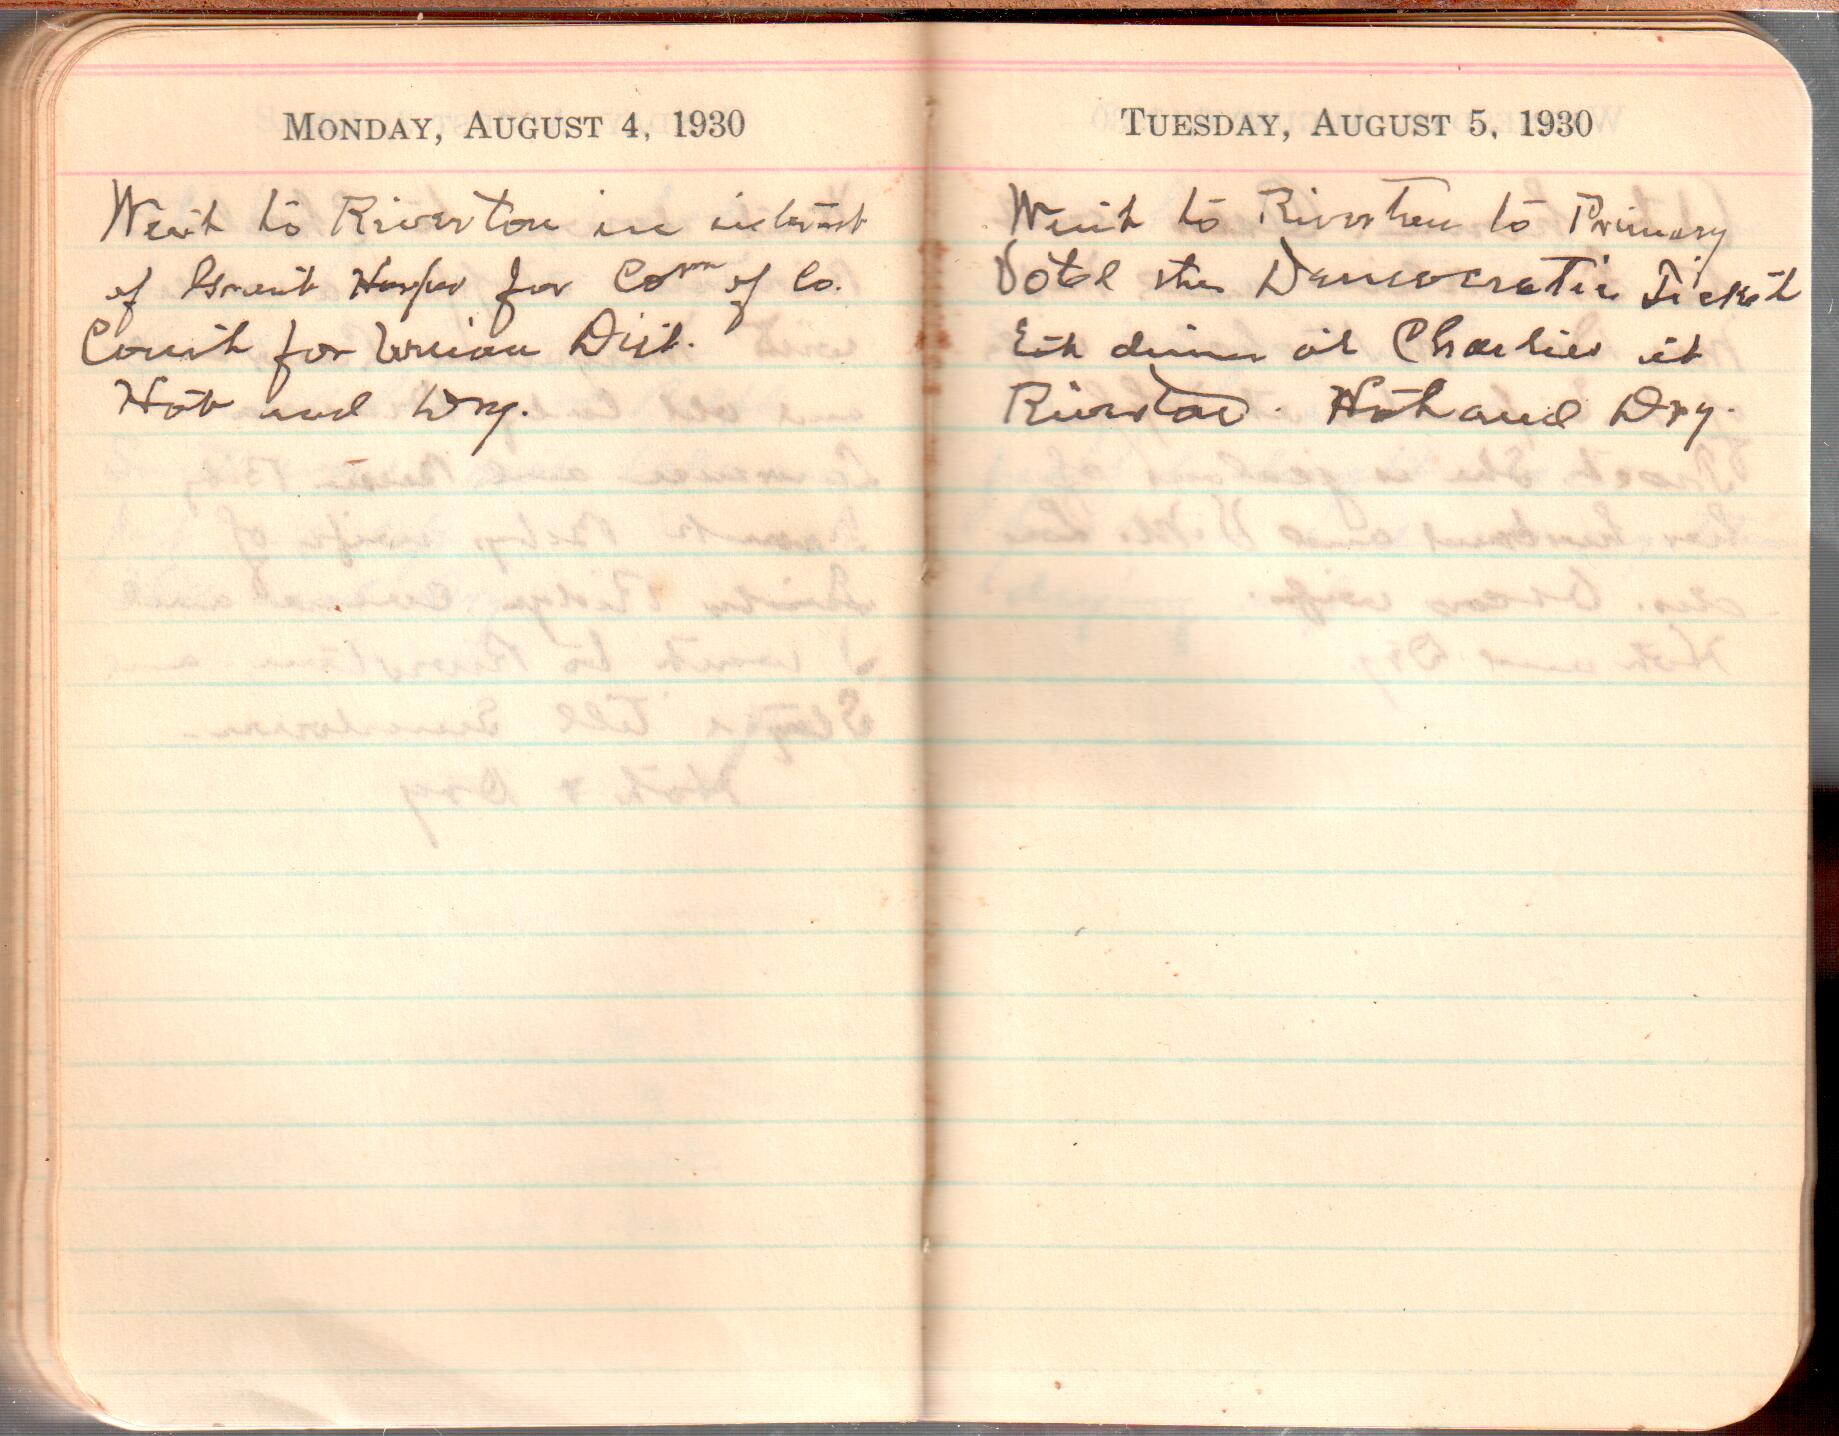 MONDAY, AUGUST 4, 1930
Went to Riverton in interest
of Grant Harper for Com of Co.
Court for Union Dist.
Hot and Dry.
TUESDAY, AUGUST 5, 1930
Went to Riverton to Primary
Voted the Democratic Ticket
Eat dinner at Charlies at
Riverton. Hot and Dry.